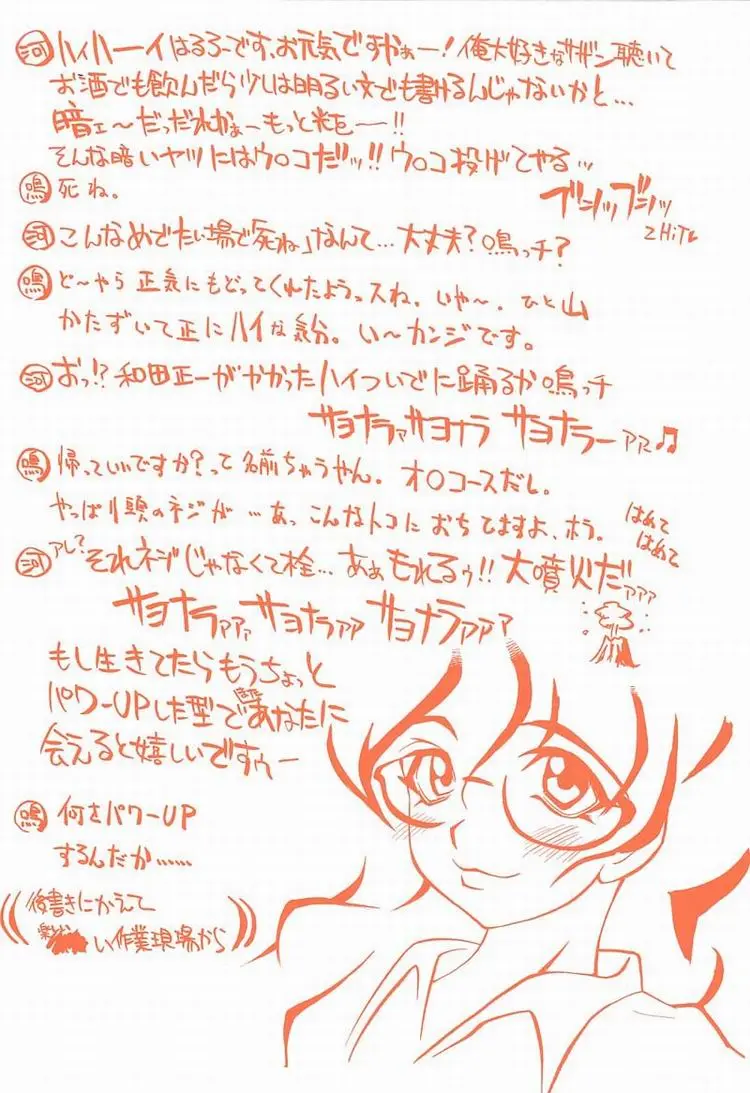 河 ハイハーイはるろーです、お元気ですかぁー!俺大好きなサザン聴いて
お酒でも飲んだら少しは明るい文でも書けるんじゃないかと…
暗ェ〜だっだれかぁーもっと粧を──!!
そんな暗いヤツにはウ○コだッ!!ウ○コ投げてやる…
ブシッブシッ
2HiT♥
鳴 死ね。
河 こんなめでたい場で死ね」なんて…大丈夫?鳴っチ?
鳴 ど〜やら正気にもどってくれたようっスね。いや〜。ひと山
かたずいて正にハイな気分。い〜カンジです。
河 おっ!?和田正一がやかったハイついでに踊るか鳴っチ
サヨナラァサヨナラ サヨナラーァァ♫
鳴 帰っていいですか?って名前ちゃうやん。オ○コースだし。
やっぱり頭のネジが…あっこんなトコにおちてますよ、ホラ。
はめて
はめて
河 アレ?それネジじゃなくて栓…あぁもれるぅ!!大噴火だァァァ
サヨナラァァァサヨナラァァァサヨナラァァァ
もし生きてたらもうちょっと
パワーUPした型であなたに
会えると嬉しいですぅー
鳴 何をパワーUP
するんだか……
後書きにかえて
い作業現場から